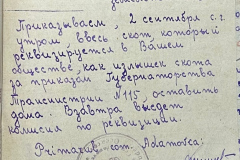 Приказываем, 2 сентября с.г.
утром, весь скот, который
реквизируется в Вашем
обществе, как излишек скота
за приказам Губернаторства
Транснистрии №115, оставить
дома. Взавтра выедет
комисия по реквизиции.
Primarul com. Adamovca: